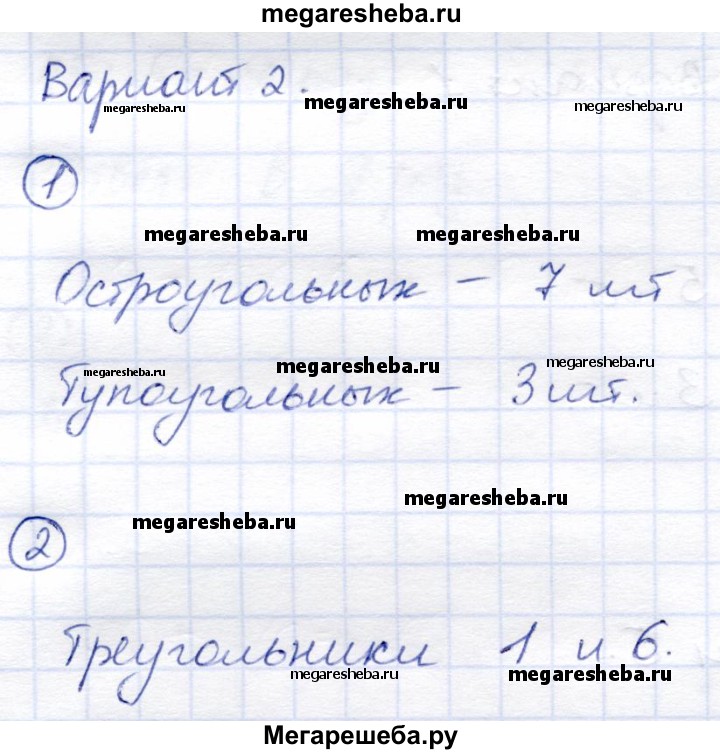 megaresheba.ru
Вариант 2.
megaresheba.ru megaresheba.ru megaresheba.ru
1
megaresheba.ru megaresheba.ru
Остроугольных – 7 шт
megaresheba.ru megaresheba.ru megaresheba.ru
Тупоугольных – 3 шт.
megaresheba.ru
megaresheba.ru
2
Треугольники 1 и 6.
megaresheba.ru megaresheba.ru
Мегарешеба.ру